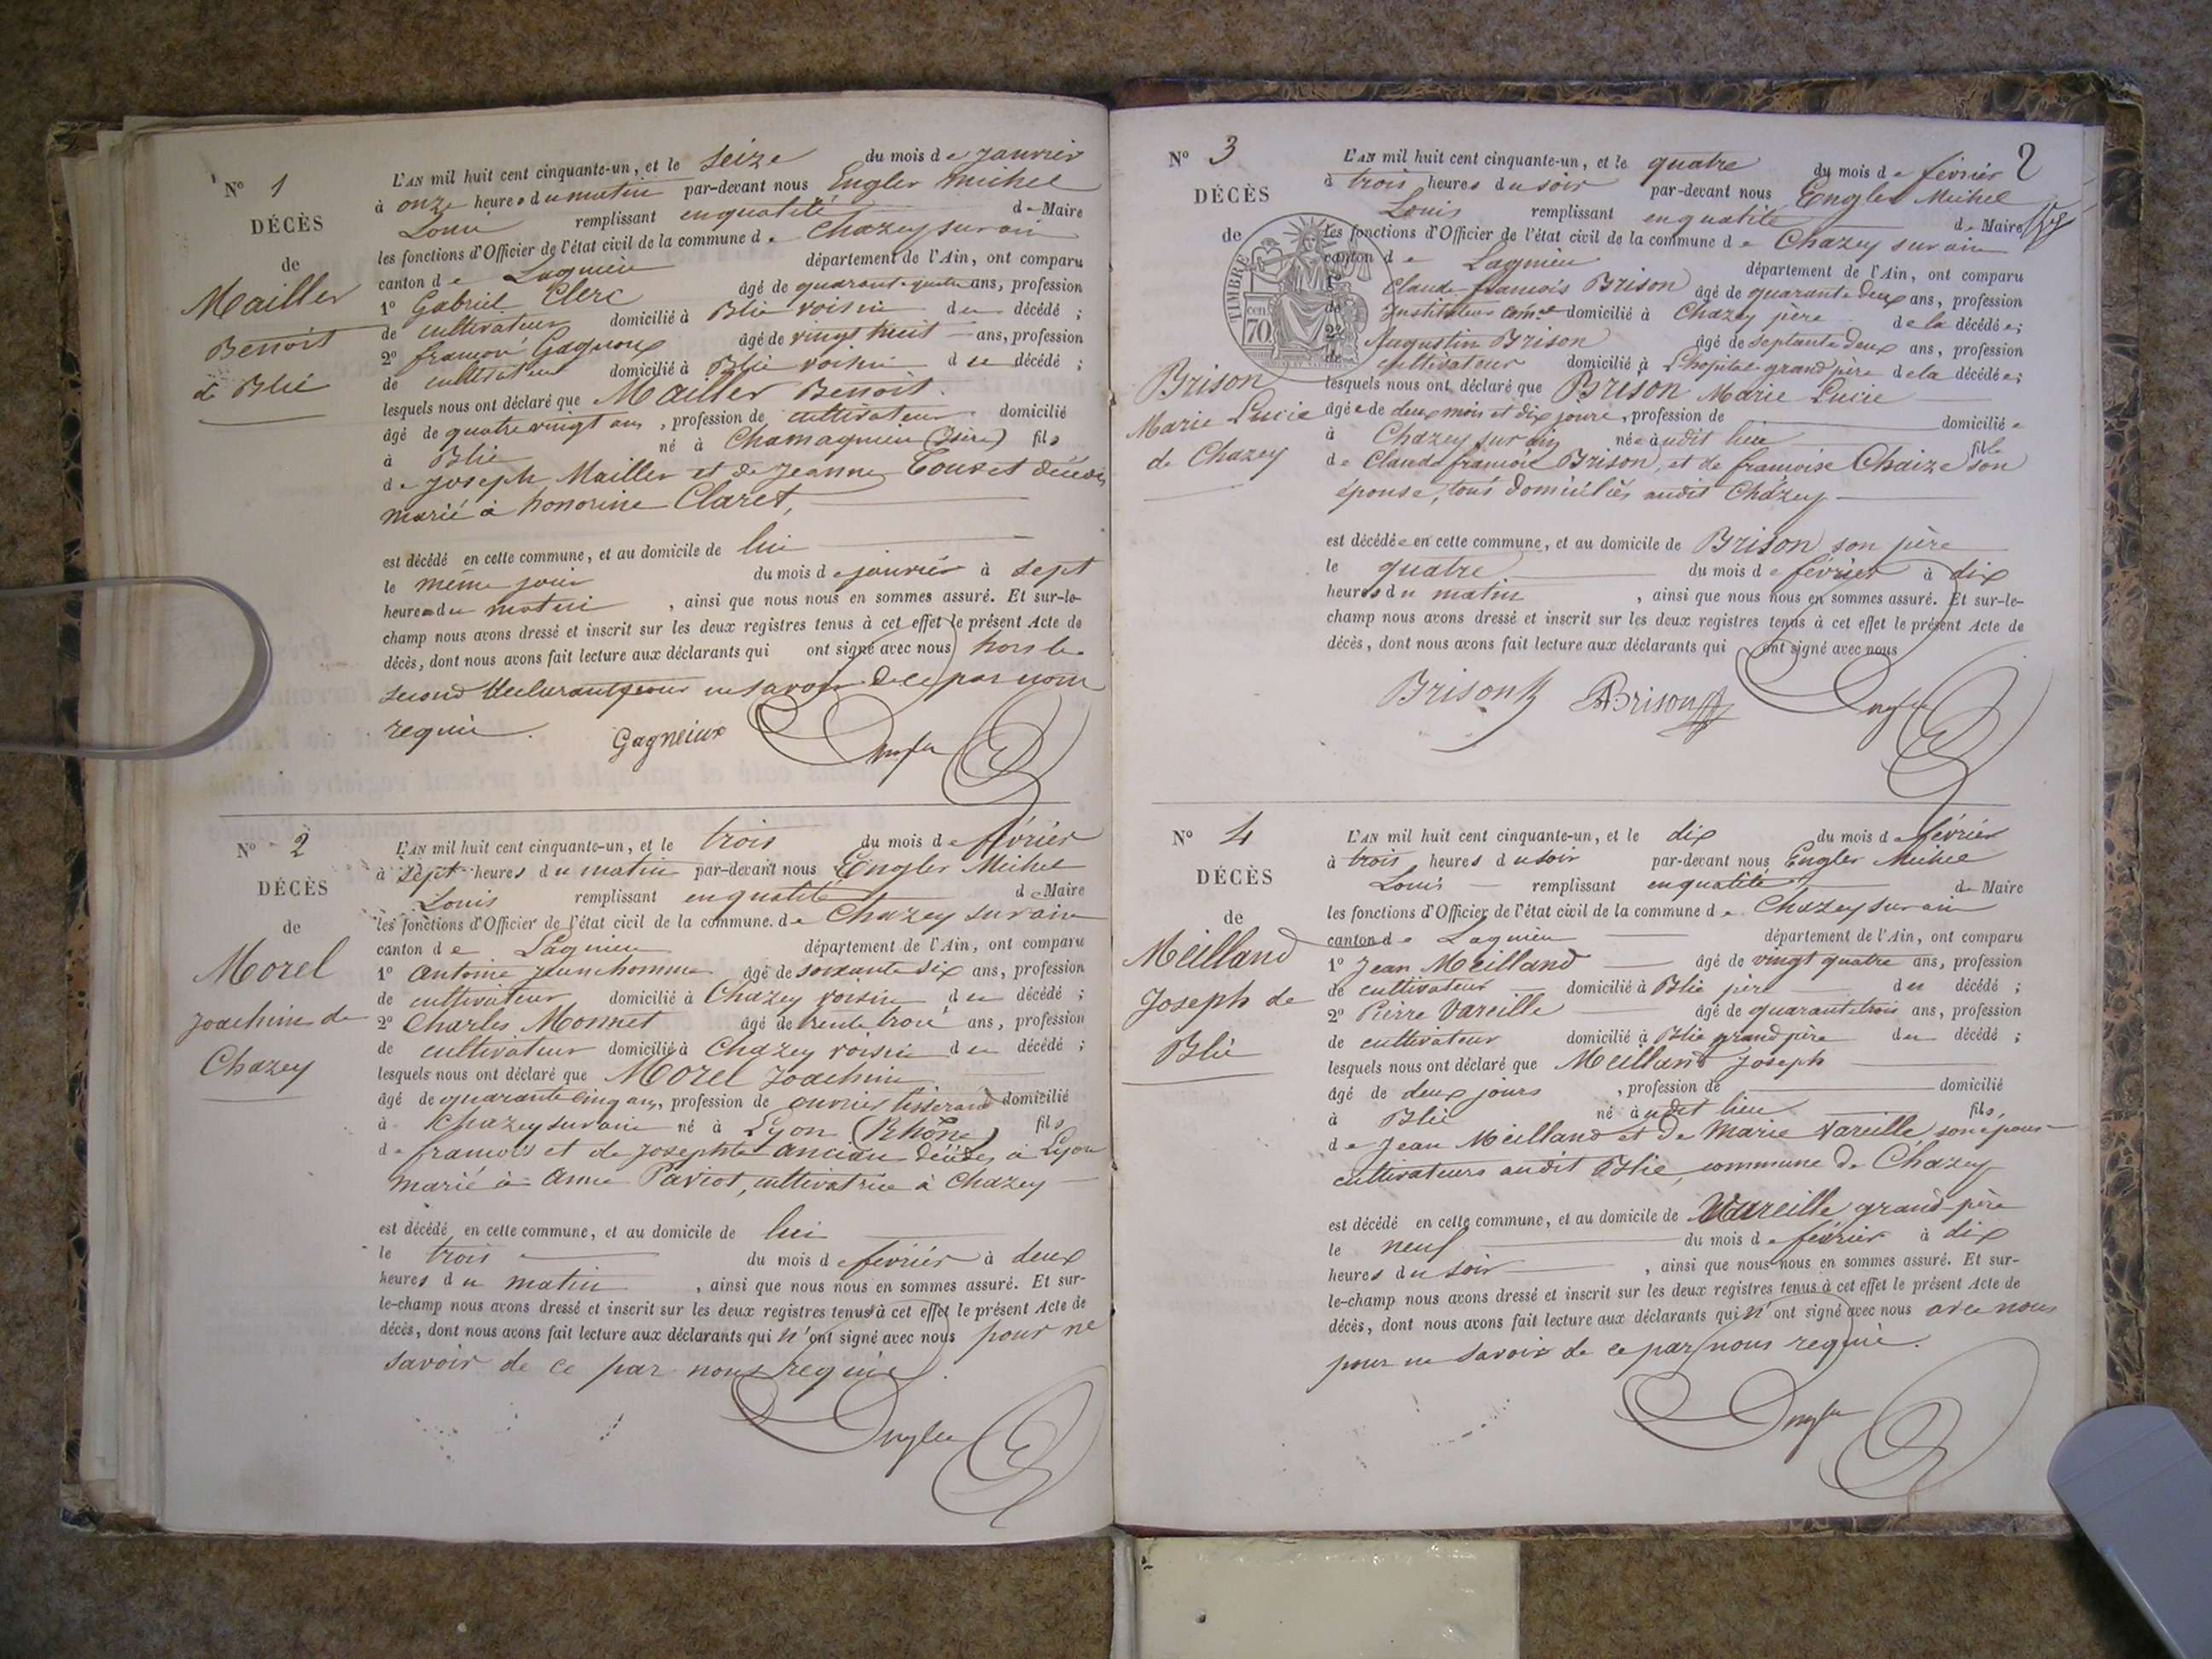 N° 1
DÉCÈS
de
Mailler
Benoit
de Blie
L'AN mil huit cent cinquante-un, et le seize du mois de janvier
à onze heures du matin par-devant nous Engler Michel
Louis remplissant en qualité de Maire
les fonctions d'Officier de l'état civil de la commune de Chazey sur ain
canton de Lagnieu département de l'Ain, ont comparu
1° Gabriel Clerc âgé de quarante quatre ans, profession
de cultivateur domicilié à Blie voisin du décédé ;
2° françois Gagneux âgé de vingt huit ans, profession
de cultivateur domicilié à Blie voisin du décédé ;
lesquels nous ont déclaré que Mailler Benoit.
âgé de quatre vingt ans, profession de cultivateur domicilié
à Blie né à Chamagnieu (Isère) fils
de Joseph Mailler et de Jeanne décédés
marié à honorine Claret,
est décédé en cette commune, et au domicile de lui
le même jour du mois de janvier à sept
heures du matin, ainsi que nous nous en sommes assuré. Et sur-le-
champ nous avons dressé et inscrit sur les deux registres tenus à cet effet le présent Acte de
décès, dont nous avons fait lecture aux déclarants qui ont signé avec nous hors le
second déclarant pour ne savoir de ce par nous
requis.
Gagneiux Engler
N° 2
DÉCÈS
de
Morel
Joachim de
Chazey
L'AN mil huit cent cinquante-un, et le trois du mois de février
à sept heures du matin par-devant nous Engler Michel
Louis remplissant en qualité de Maire
les fonctions d'Officier de l'état civil de la commune de Chazey sur ain
canton de Lagnieu département de l'Ain, ont comparu
1° Antoine Jeunehomme âgé de soixante dix ans, profession
de cultivateur domicilié à Chazey voisin du décédé ;
2° Charles Monnet âgé de trente trois ans, profession
de cultivateur domicilié à Chazey voisin du décédé ;
lesquels nous ont déclaré que Morel Joachim
âgé de quarante cinq ans, profession de ouvrier tisserand domicilié
à Chazey sur ain né à Lyon (Rhône) fils
de françois et de Josephte Ancian décédés à Lyon
marié à Anne Paviot, cultivatrice à Chazey
est décédé en cette commune, et au domicile de lui
le trois du mois de février à deux
heures du matin, ainsi que nous nous en sommes assuré. Et sur-
le-champ nous avons dressé et inscrit sur les deux registres tenus à cet effet le présent Acte de
décès, dont nous avons fait lecture aux déclarants qui n'ont signé avec nous pour ne
savoir de ce par nous requis.
Engler
2
N° 3
DÉCÈS
de
TIMBRE
70
Brison
Marie Lucie
de Chazey
L'AN mil huit cent cinquante-un, et le quatre du mois de février
à trois heures du soir par-devant nous Engler Michel
Louis remplissant en qualité de Maire
les fonctions d'Officier de l'état civil de la commune de Chazey sur ain
canton de Lagnieu département de l'Ain, ont comparu
1° Claude françois Brison âgé de quarante deux ans, profession
de Instituteur com.al domicilié à Chazey père de la décédée ;
2° Augustin Brison âgé de septante deux ans, profession
de cultivateur domicilié à L'hopital grand père de la décédée ;
lesquels nous ont déclaré que Brison Marie Lucie
âgée de deux mois et dix jours, profession de domiciliée
à Chazey sur ain née audit lieu fille
de Claude françois Brison, et de francoise Chaize son
épouse, tous domiciliés audit Chazey
est décédée en cette commune, et au domicile de Brison son père
le quatre du mois de février à dix
heures du matin, ainsi que nous nous en sommes assuré. Et sur-le-
champ nous avons dressé et inscrit sur les deux registres tenus à cet effet le présent Acte de
décès, dont nous avons fait lecture aux déclarants qui ont signé avec nous
Brison ABrison Engler
N° 4
DÉCÈS
de
Meilland
Joseph de
Blie
L'AN mil huit cent cinquante-un, et le dix du mois de février
à trois heures du soir par-devant nous Engler Michel
Louis remplissant en qualité de Maire
les fonctions d'Officier de l'état civil de la commune de Chazey sur ain
canton de Lagnieu département de l'Ain, ont comparu
1° Jean Meilland âgé de vingt quatre ans, profession
de cultivateur domicilié à Blie père du décédé ;
2° Pierre Vareille âgé de quarante trois ans, profession
de cultivateur domicilié à Blie grand père du décédé ;
lesquels nous ont déclaré que Meilland Joseph
âgé de deux jours, profession de domicilié
à Blie né audit lieu fils
de Jean Meilland et de Marie Vareille son épouse
cultivateurs audit Blie, commune de Chazey
est décédé en cette commune, et au domicile de Vareille grand-père
le neuf du mois de février à dix
heures du soir, ainsi que nous nous en sommes assuré. Et sur-
le-champ nous avons dressé et inscrit sur les deux registres tenus à cet effet le présent Acte de
décès, dont nous avons fait lecture aux déclarants qui n'ont signé avec nous avec nous
pour ne savoir de ce par nous requis.
Engler